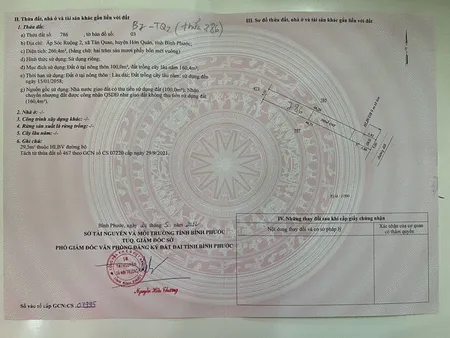 II. Thửa đất, nhà ở và tài sản khác gắn liền với đất
B7 - TQ2 (thửa 786)
1. Thửa đất:
a) Thửa đất số: 786 , tờ bản đồ số: 03
b) Địa chỉ: Ấp Sóc Ruộng 2, xã Tân Quan, huyện Hớn Quản, tỉnh Bình Phước.
c) Diện tích: 260,4m², (bằng chữ: hai trăm sáu mươi phẩy bốn mét vuông).
d) Hình thức sử dụng: Sử dụng riêng;
đ) Mục đích sử dụng: Đất ở tại nông thôn 100,0m²; Đất trồng cây lâu năm 160,4m².
e) Thời hạn sử dụng: Đất ở tại nông thôn: Lâu dài; Đất trồng cây lâu năm: sử dụng đến
15/01/2058.
g) Nguồn gốc sử dụng: Nhà nước giao đất có thu tiền sử dụng đất (100,0m²); Nhận
chuyển nhượng đất được công nhận QSDĐ như giao đất không thu tiền sử dụng đất
(160,4m²).
2. Nhà ở: -/-
3. Công trình xây dựng khác: -/-
4. Rừng sản xuất là rừng trồng: -/-
5. Cây lâu năm: -/-
6. Ghi chú:
29,5m² thuộc HLBV đường bộ
Tách từ thửa đất số 467 theo GCN số CS 07220 cấp ngày 29/9/2021.
Bình Phước, ngày
SỞ TÀI NGUYÊN VÀ MÔI TRƯỜNG TỈNH BÌNH PHƯỚC
TUQ. GIÁM ĐỐC SỞ
PHÓ GIÁM ĐỐC VĂN PHÒNG ĐĂNG KÝ ĐẤT ĐAI TỈNH BÌNH PHƯỚC
Nguyễn Hữu Chương
Số vào sổ cấp GCN: CS
III. Sơ đồ thửa đất, nhà ở và tài sản khác gắn liền với đất
786
IV. Những thay đổi sau khi cấp giấy chứng nhận
Nội dung thay đổi và cơ sở pháp lý
Xác nhận của cơ quan
có thẩm quyền